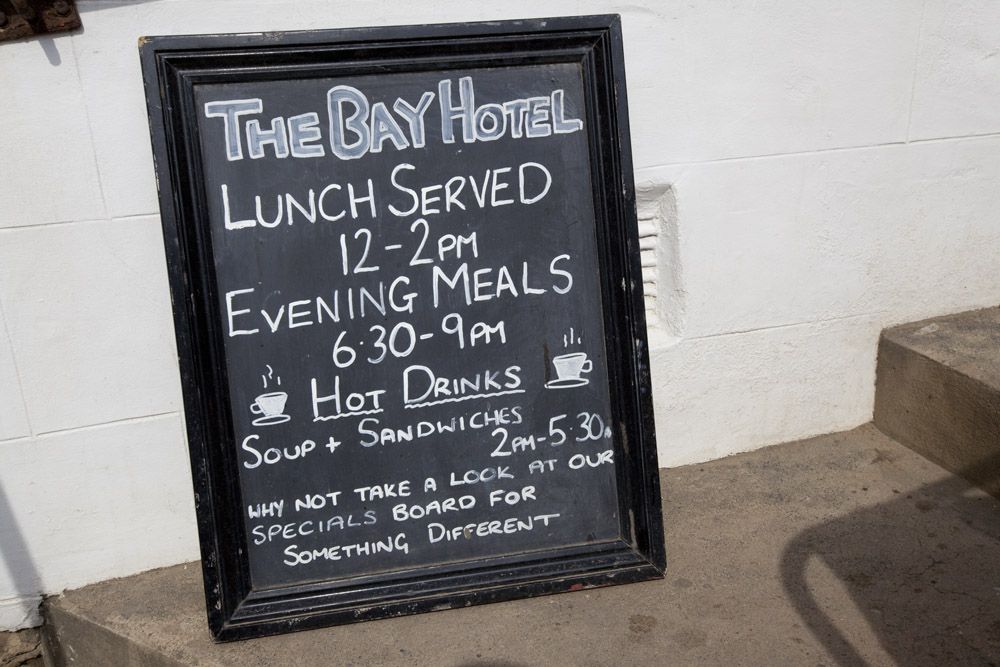 The Bay Hotel
Lunch Served
12-2pm
Evening Meals
6.30-9pm
Hot Drinks
Soup + Sandwiches
2pm-5.30
Why not take a look at our
Specials board for
Something Different